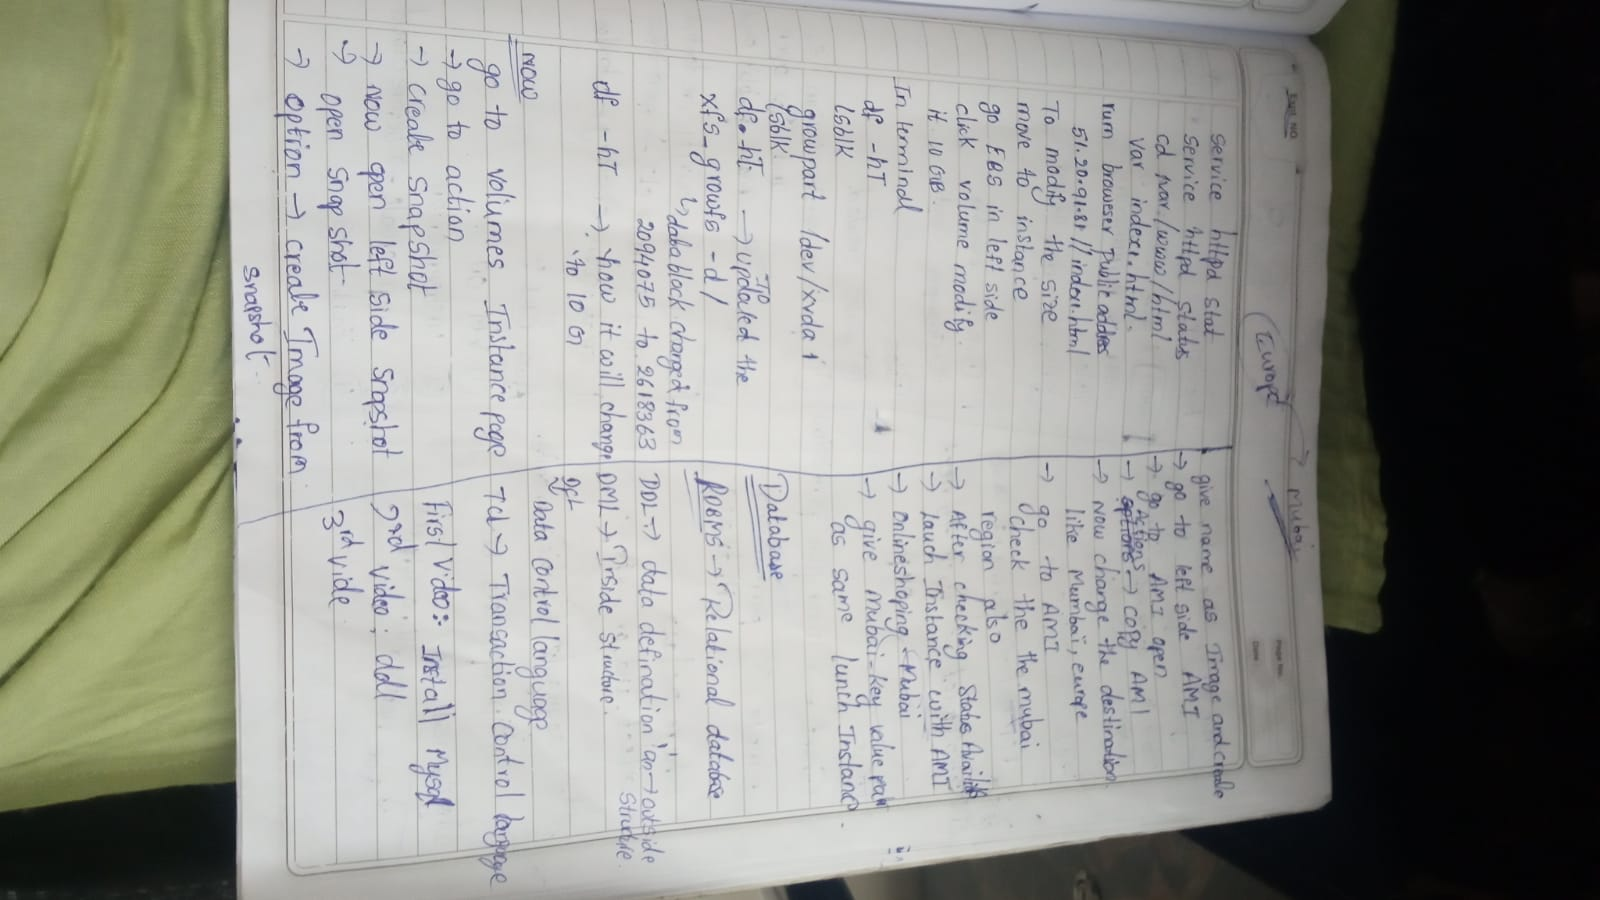 Expt. No.
Page No.
Date
Europe → Mubai
Service httpd stat
Service httpd status
cd var/www/html
var index.html.
run broweser public addres
51.20.91.81//index.html
To modify the size
move to instance
go EBS in left side
click volume modify.
it 10 GB.
In terminal
df -hT
lsblk
growpart /dev/xvda 1
lsblk
df -hT → updated the
xfs_growfs -d /
↳ datablock changed from
2094075 to 2618363
df -hT → how it will change
to 10 G
NOW
go to volumes. Instance page
→ go to action
→ create snapshot
→ now open left side snapstot
→ open snapshot
→ option → create Image from
snapshot
give name as Image and create
→ go to left side AMI
→ go to AMI open
→ Actions → copy AMI
→ Now change the destination
like Mumbai, europe
→ go to AMI
check the the mubai
region also
→ After checking Status
→ lauch Instance with AMI
→ onlineshoping - Mubai
→ give mubai-key value
as same lunch Instance.
Database
RDBMS → Relational database
DDL → data defination → outside
structure.
DML → Inside structure.
Data control language
Tcl → Transaction control language
First Video: Install Mysql
2rd video: ddl
3rd vide